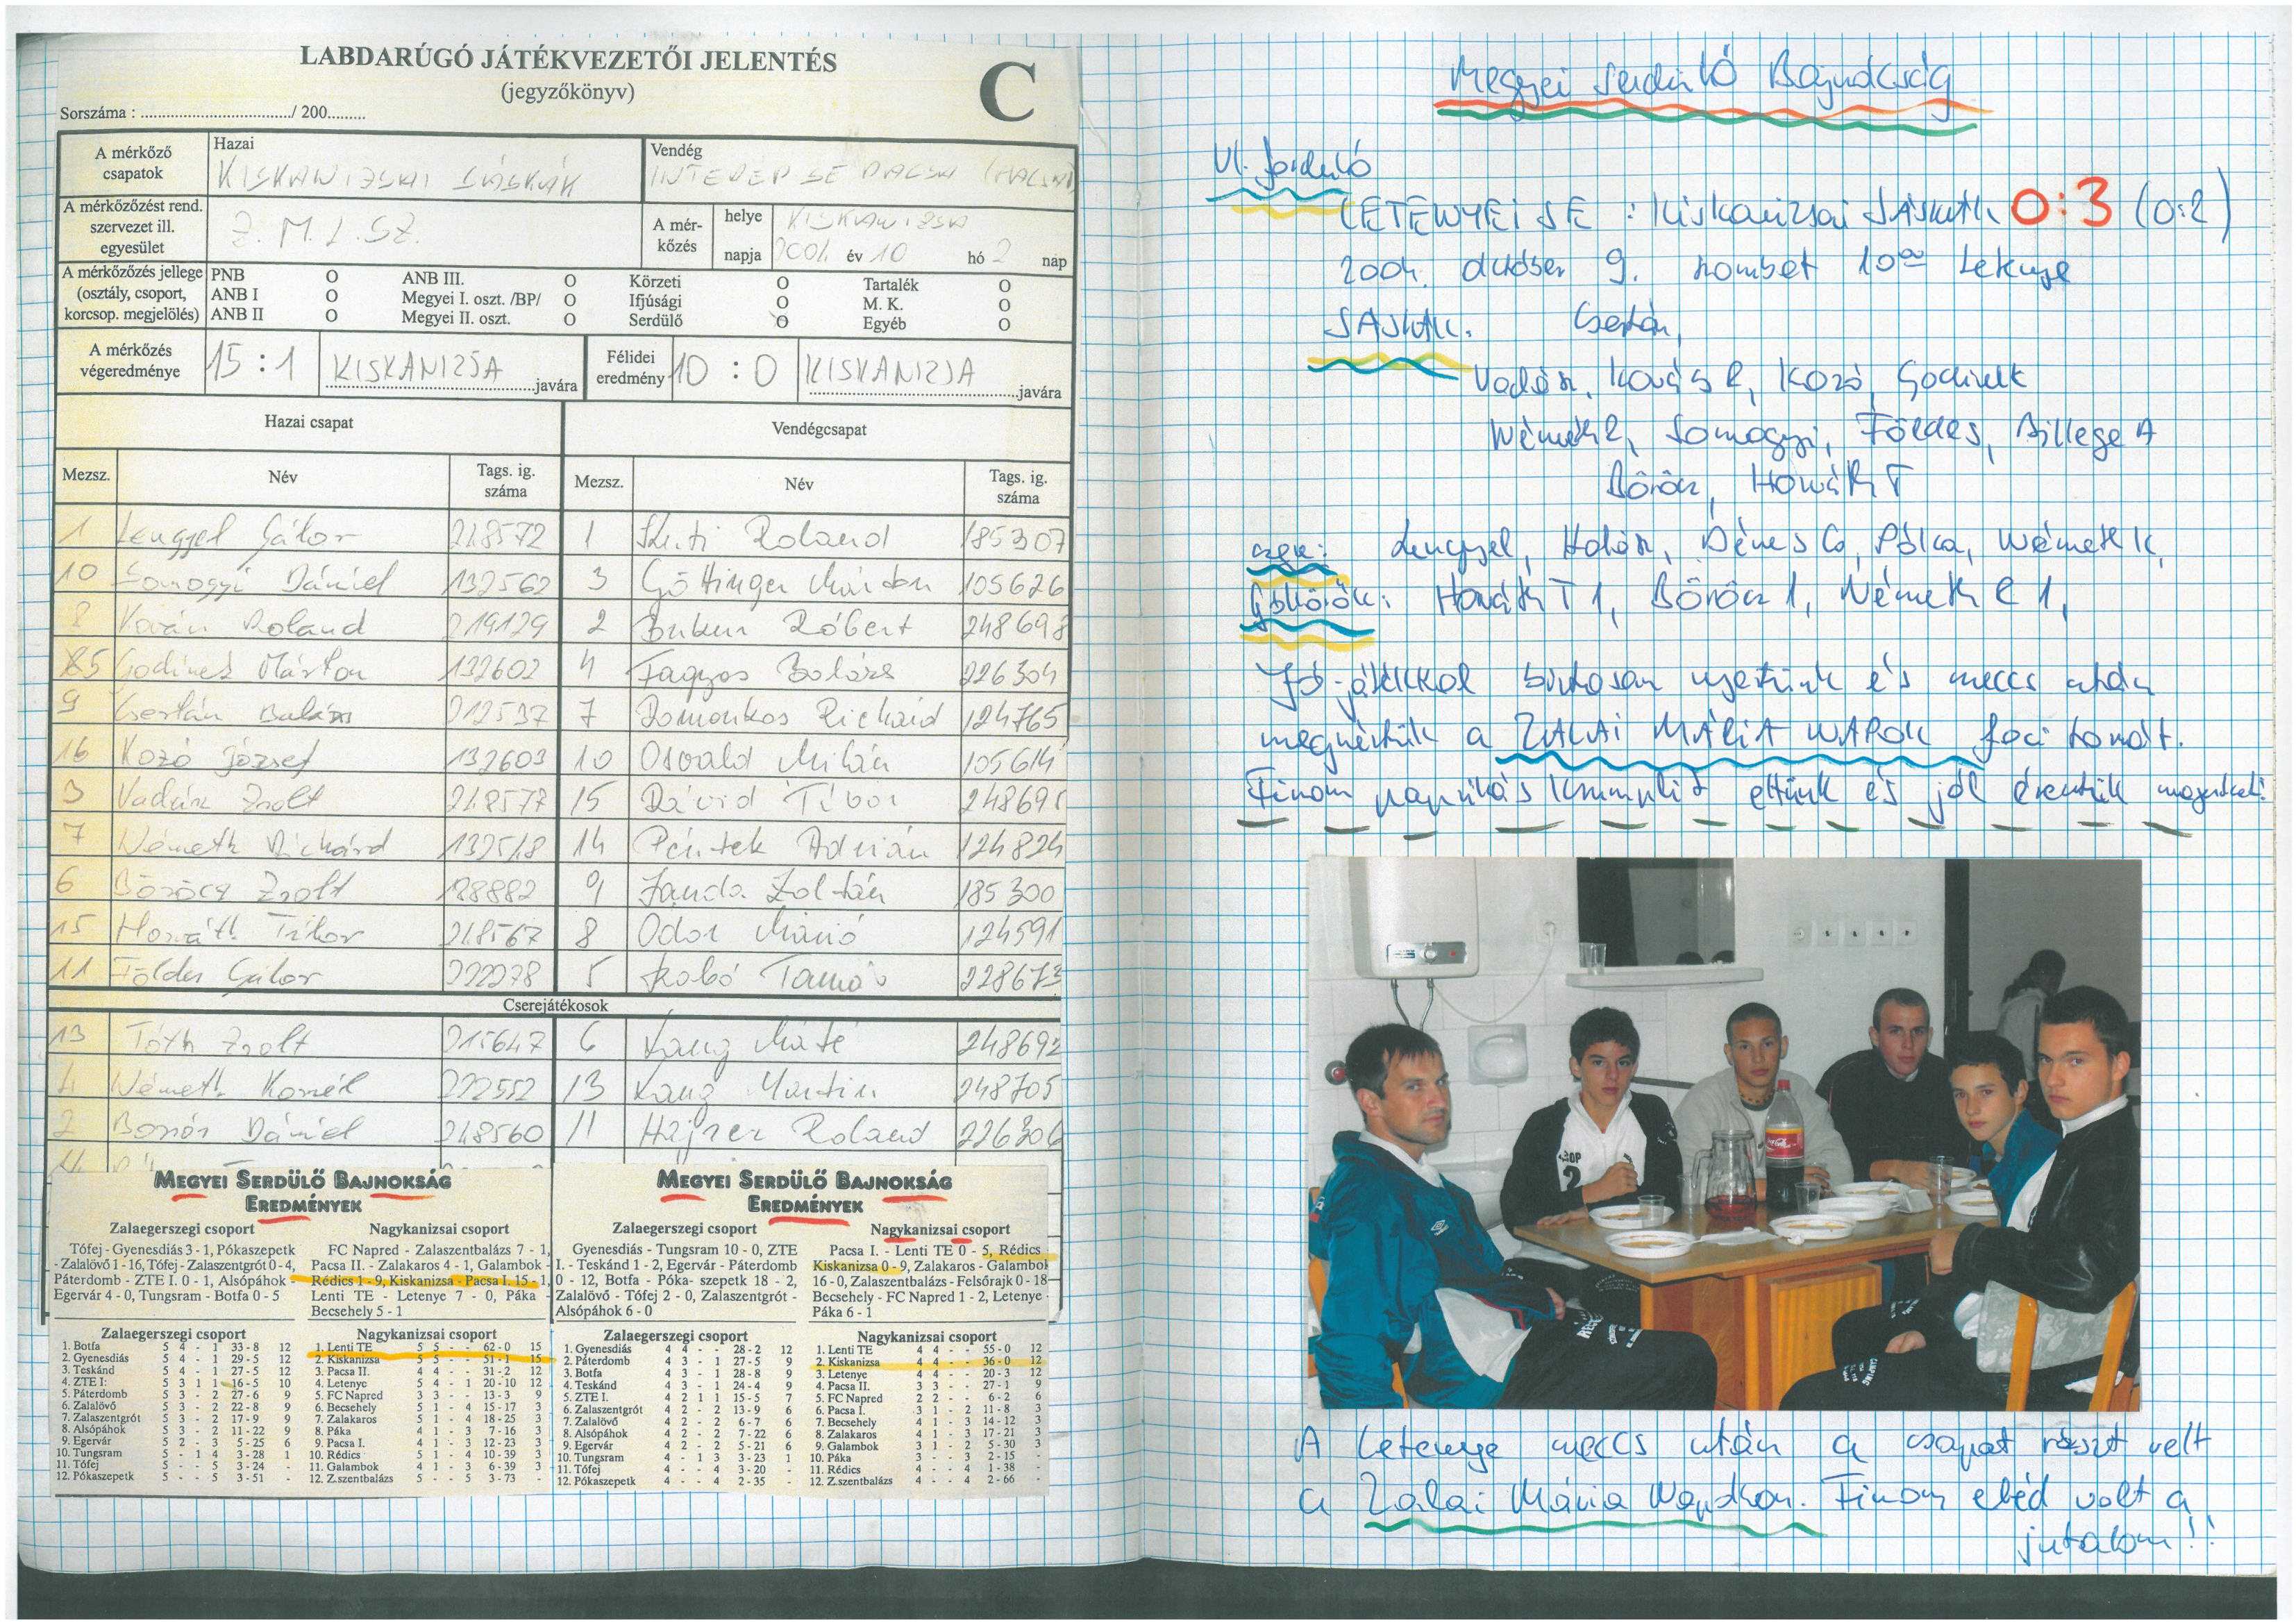 LABDARÚGÓ JÁTÉKVEZETŐI JELENTÉS
(jegyzőkönyv)
C
Sorszáma : ................................../ 200.........
A mérkőző csapatok
Hazai
KISKANIZSAI SÁSKÁK
Vendég
INTERÉP SE PACSA
A mérkőzőzést rend. szervezet ill. egyesület
Z.M.L.SZ.
A mér-kőzés
helye KISKANIZSA
napja 2004 év 10 hó 2 nap
A mérkőzőzés jellege (osztály, csoport, korcsop. megjelölés)
PNB O ANB III. O Körzeti O Tartalék O
ANB I O Megyei I. oszt. /BP/ O Ifjúsági O M. K. O
ANB II O Megyei II. oszt. O Serdülő O Egyéb O
A mérkőzés végeredménye 15 : 1 KISKANIZSA javára
Félidei eredmény 10 : 0 KISKANIZSA javára
Hazai csapat Vendégcsapat
Mezsz. Név Tags. ig. száma Mezsz. Név Tags. ig. száma
1 Lengyel Gábor 218572 1 Roland 185307
10 Somogyi Dániel 132562 3 Göttinger Márton 105626
8 Kován Roland 219129 2 Róbert 248698
5 Godinek Márton 132602 4 Fagyos Balázs 226304
9 Csertán Balázs 212537 7 Domonkos Richárd 124765
16 Kozó József 132603 10 Osvald Milán 105614
3 Vadász Zsolt 218577 15 Dávid Tibor 248695
7 Németh Richárd 132518 14 Péntek Adrián 124824
6 Böröcz Zsolt 188882 9 Janda Zoltán 185300
15 Horváth Tibor 218567 8 Odor Márió 124591
11 Földes Gábor 222278 5 Szabó Tamás 228673
Cserejátékosok
13 Tóth Zsolt 215647 6 Lang Máté 248692
4 Németh Kornél 222552 13 Lang Martin 248705
2 Dániel 218560 11 Hajzer Roland 226306
MEGYEI SERDÜLŐ BAJNOKSÁG
EREDMÉNYEK
Zalaegerszegi csoport
Tófej - Gyenesdiás 3 - 1, Pókaszepetk
- Zalalövő 1 - 16, Tófej - Zalaszentgrót 0 - 4,
Páterdomb - ZTE I. 0 - 1, Alsópáhok -
Egervár 4 - 0, Tungsram - Botfa 0 - 5
Nagykanizsai csoport
FC Napred - Zalaszentbalázs 7 - 1,
Pacsa II. - Zalakaros 4 - 1, Galambok -
Rédics 1 - 9, Kiskanizsa - Pacsa I. 15 - 1,
Lenti TE - Letenye 7 - 0, Páka -
Becsehely 5 - 1
Zalaegerszegi csoport
1. Botfa 5 4 - 1 33 - 8 12
2. Gyenesdiás 5 4 - 1 29 - 5 12
3. Teskánd 5 4 - 1 27 - 5 12
4. ZTE I: 5 3 1 1 16 - 5 10
5. Páterdomb 5 3 - 2 27 - 6 9
6. Zalalövő 5 3 - 2 22 - 8 9
7. Zalaszentgrót 5 3 - 2 17 - 9 9
8. Alsópáhok 5 3 - 2 11 - 22 9
9. Egervár 5 2 - 3 5 - 25 6
10. Tungsram 5 - 1 4 3 - 28 1
11. Tófej 5 - - 5 3 - 24 -
12. Pókaszepetk 5 - - 5 3 - 51 -
Nagykanizsai csoport
1. Lenti TE 5 5 - - 62 - 0 15
2. Kiskanizsa 5 5 - - 51 - 1 15
3. Pacsa II. 4 4 - - 31 - 2 12
4. Letenye 5 4 - 1 20 - 10 12
5. FC Napred 3 3 - - 13 - 3 9
6. Becsehely 5 1 - 4 15 - 17 3
7. Zalakaros 5 1 - 4 18 - 25 3
8. Páka 4 1 - 3 7 - 16 3
9. Pacsa I. 4 1 - 3 12 - 23 3
10. Rédics 5 1 - 4 10 - 39 3
11. Galambok 4 1 - 3 6 - 39 3
12. Z.szentbalázs 5 - - 5 3 - 73 -
MEGYEI SERDÜLŐ BAJNOKSÁG
EREDMÉNYEK
Zalaegerszegi csoport
Gyenesdiás - Tungsram 10 - 0, ZTE
I. - Teskánd 1 - 2, Egervár - Páterdomb
0 - 12, Botfa - Póka- szepetk 18 - 2,
Zalalövő - Tófej 2 - 0, Zalaszentgrót -
Alsópáhok 6 - 0
Nagykanizsai csoport
Pacsa I. - Lenti TE 0 - 5, Rédics
Kiskanizsa 0 - 9, Zalakaros - Galambok
16 - 0, Zalaszentbalázs - Felsőrajk 0 - 18
Becsehely - FC Napred 1 - 2, Letenye
Páka 6 - 1
Zalaegerszegi csoport
1. Gyenesdiás 4 4 - - 28 - 2 12
2. Páterdomb 4 3 - 1 27 - 5 9
3. Botfa 4 3 - 1 28 - 8 9
4. Teskánd 4 3 - 1 24 - 4 9
5. ZTE I. 4 2 1 1 15 - 5 7
6. Zalaszentgrót 4 2 - 2 13 - 9 6
7. Zalalövő 4 2 - 2 6 - 7 6
8. Alsópáhok 4 2 - 2 7 - 22 6
9. Egervár 4 2 - 2 5 - 21 6
10. Tungsram 4 - 1 3 3 - 23 1
11. Tófej 4 - - 4 3 - 20 -
12. Pókaszepetk 4 - - 4 2 - 35 -
Nagykanizsai csoport
1. Lenti TE 4 4 - - 55 - 0 12
2. Kiskanizsa 4 4 - - 36 - 0 12
3. Letenye 4 4 - - 20 - 3 12
4. Pacsa II. 3 3 - - 27 - 1 9
5. FC Napred 2 2 - - 6 - 2 6
6. Pacsa I. 3 1 - 2 11 - 8 3
7. Becsehely 4 1 - 3 14 - 12 3
8. Zalakaros 4 1 - 3 17 - 21 3
9. Galambok 3 1 - 2 5 - 30 3
10. Páka 3 - - 3 2 - 15 -
11. Rédics 4 - - 4 1 - 38 -
12. Z.szentbalázs 4 - - 4 2 - 66 -
Megyei Serdülő Bajnokság
VI. forduló
LETENYEI SE : Kiskanizsai SÁSKÁK 0:3 (0:2)
2004. október 9. szombat 10 00 Letenye
SÁSKÁK. Csertán,
Vadász, Kovács R, Kozó, Godinek
Németh R, Somogyi, Földes, Billege A
Böröcz, Horváth T
csere: Lengyel, Dénes G, Pólca, Németh K,
Góllövők: Horváth T 1, Böröcz 1, Németh R 1,
Jó játékkal biztosan nyertünk és meccs után
megnéztük a ZALAI MÁRIA NAPOK foci tornát.
Finom paprikás krumplit ettünk és jól éreztük magunkat!
A Letenye meccs után a csapat részt vett
a Zalai Mária Napokon. Finom ebéd volt a
jutalom!!